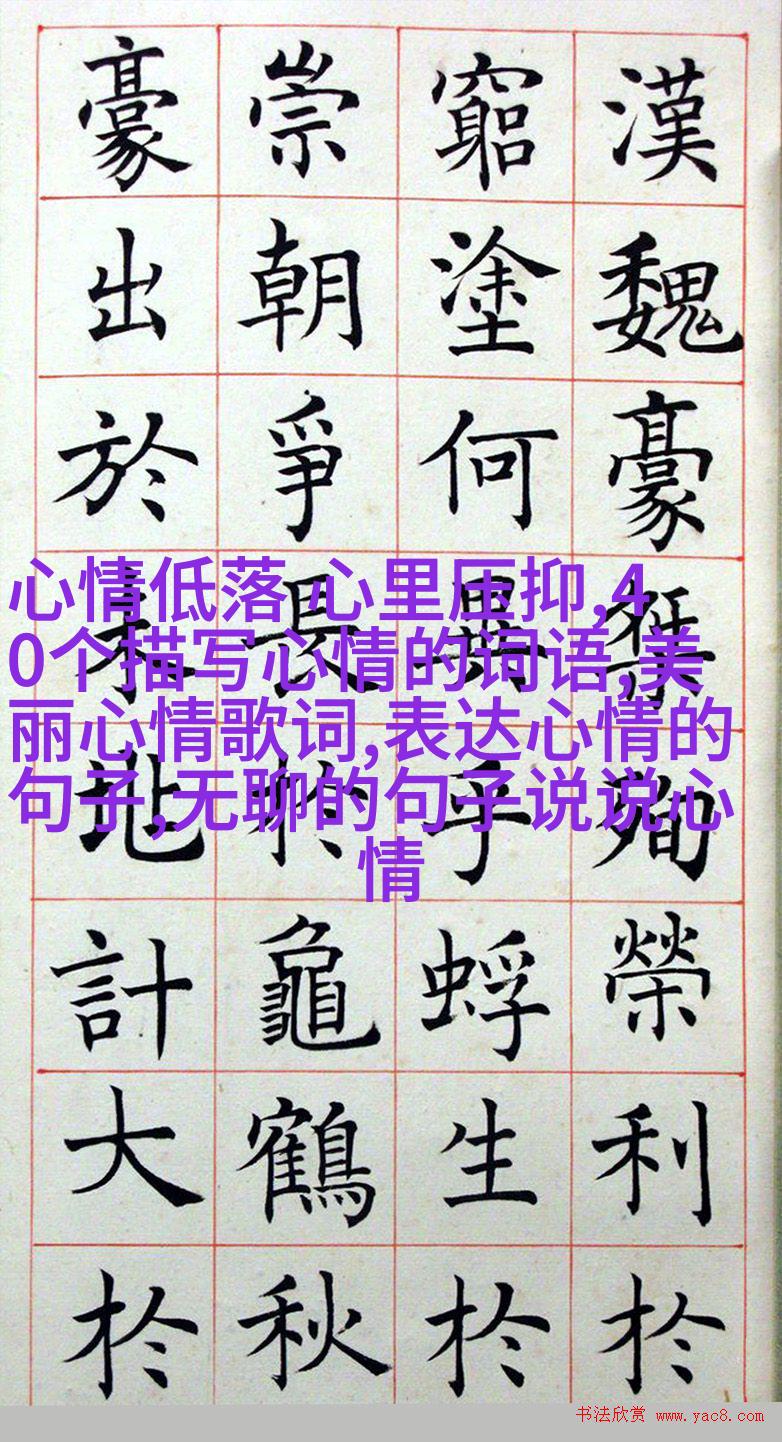 漢魏豪榮利於
窮塗何異乎蜉生於
崇朝爭長於龜鶴秋
豪出於計大於
心情低落 心里压抑,4
0个描写心情的词语,美
丽心情歌词,表达心情的
句子,无聊的句子说说心
情
书法欣赏 www.yac8.com